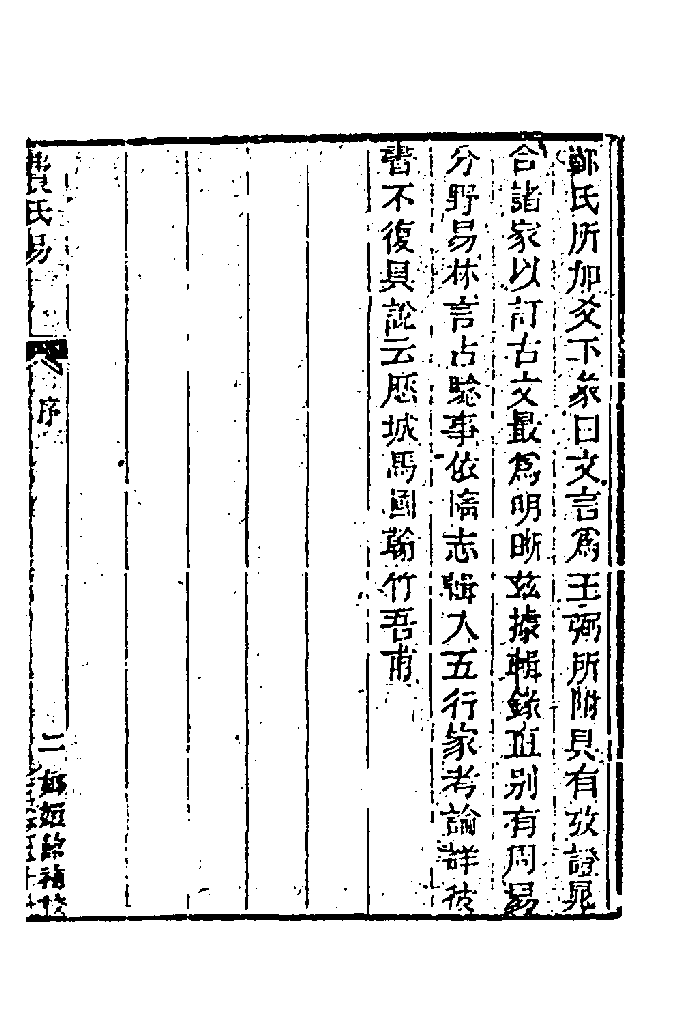 鄭氏所加爻下彖曰文言爲王弼所附具有攷證晁
合諸家以訂古文最爲明晰茲據輯錄直别有周易
分野易林言占驗事依隋志輯入五行家考論詳彼
書不復具說云歷城馬國翰竹吾甫
費氏易
序
二
補校